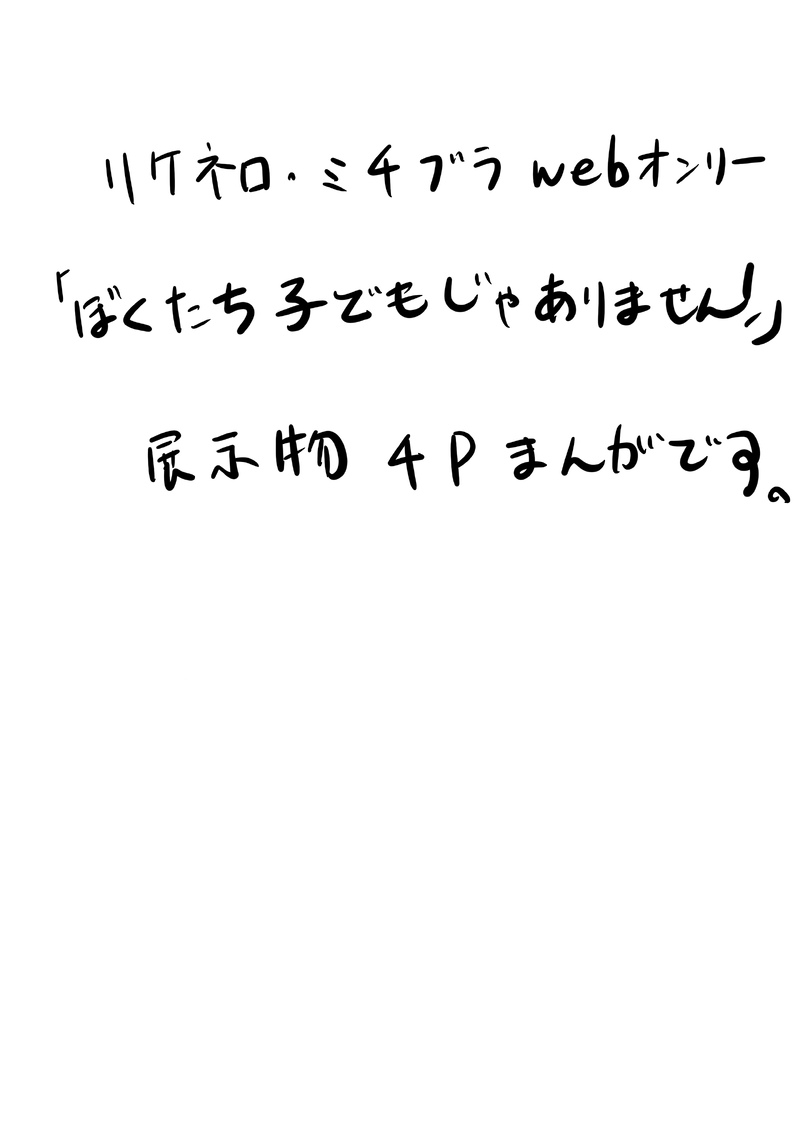 リケネロ・ミチブラ webオンリー
「ぼくたち子どもじゃありません!」
展示物 4P まんがです。